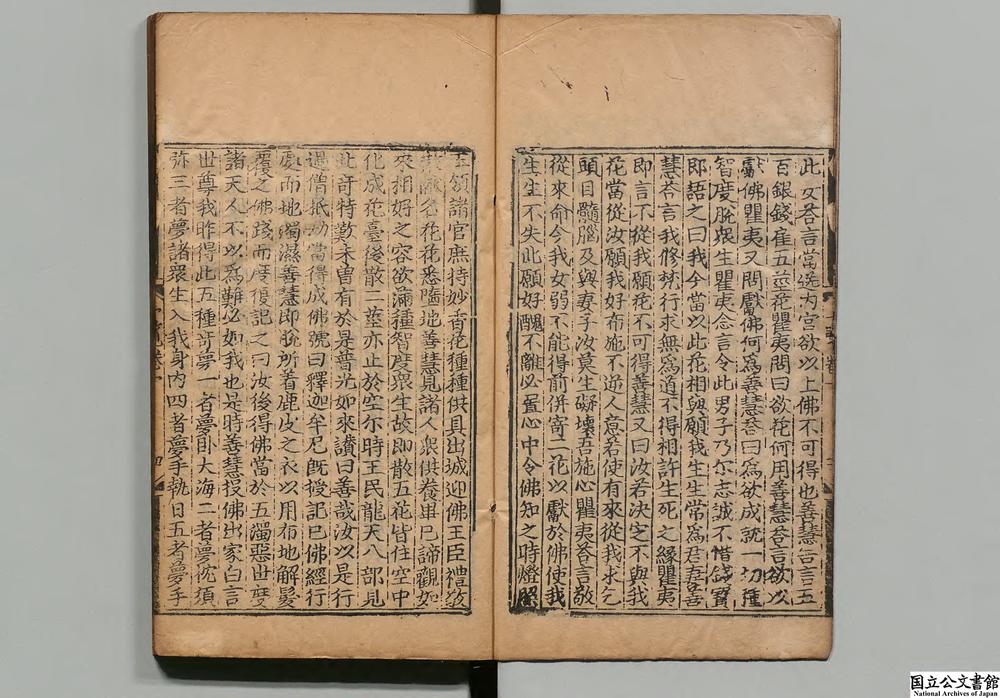 此女荅言當送內宮欲以上佛不可得也善慧荅言五
百銀錢雇五莖花瞿夷問曰欲花何用善慧荅言欲以
獻佛瞿夷又問獻佛何爲善慧荅曰爲欲成就一切種
智度脫衆生瞿夷念言今此男子乃尒志誠不惜錢寶
即語之曰我今當以此花相與願我生生常爲君妻善
慧荅言我修梵行求無爲道不得相許生死之緣瞿夷
即言不從我願花不可得善慧又曰汝若決定不與我
花當從汝願我好布施不逆人意若使有來從我求乞
頭目髓腦及與妻子汝莫生礙壞吾施心瞿夷荅言敬
從來命今我女弱不能得前併寄二花以獻於佛使我
生生不失此願好醜不離必置心中令佛知之時燈照
王領諸官庶持妙香花種種供具出城迎佛王臣禮敬
名花花悉墮地善慧見諸人衆供養畢已諦觀如
來相好之容欲滿種智度衆生故即散五花皆住空中
化成花臺後散二莖亦止於空尒時王民龍天八部見
此奇特歎未曾有於是普光如來讚曰善哉汝以是行
過僧祇劫當得成佛號曰釋迦牟尼旣授記已佛經行
處而地濁濕善慧即脫所着鹿皮之衣以用布地解髮
覆之佛踐而度復記之曰汝後得佛當於五濁惡世度
諸天人不以爲難必如我也是時善慧投佛出家白言
世尊我昨得此五種奇夢一者夢卧大海二者夢枕須
弥三者夢諸衆生入我身內四者夢手執日五者夢手
四
国立公文書館
National Archives of Japan